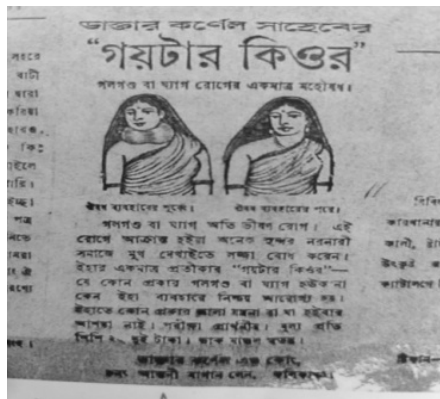 ডাক্তার কর্ণেল সাহেবের
"গয়টার কিওর"
গলগণ্ড বা ঘ্যাগ রোগের একমাত্র মহৌষধ।
ঔষধ ব্যবহারের পূর্ব্বে।
ঔষধ ব্যবহারের পরে।
গলগণ্ড বা ঘ্যাগ অতি ভীষণ রোগ। এই
রোগে আক্রান্ত হইয়া অনেক সুন্দর নরনারী
সমাজে মুখ দেখাইতে লজ্জা বোধ করেন।
ইহার একমাত্র প্রতীকার "গয়টার কিওর"—
যে কোন প্রকার গলগণ্ড বা ঘ্যাগ হউক না
কেন ইহা ব্যবহারে নিশ্চয় আরোগ্য হয়।
ইহাতে কোন প্রকার জ্বালা যন্ত্রনা বা ঘা হইবার
আশঙ্কা নাই। পরীক্ষা প্রার্থনীয়। মূল্য প্রতি
শিশি ২৲ দুই টাকা। ডাক মাশুল স্বতন্ত্র।
ডাক্তার কর্ণেল এণ্ড কোং,
বাগান লেন, কলিকাতা।